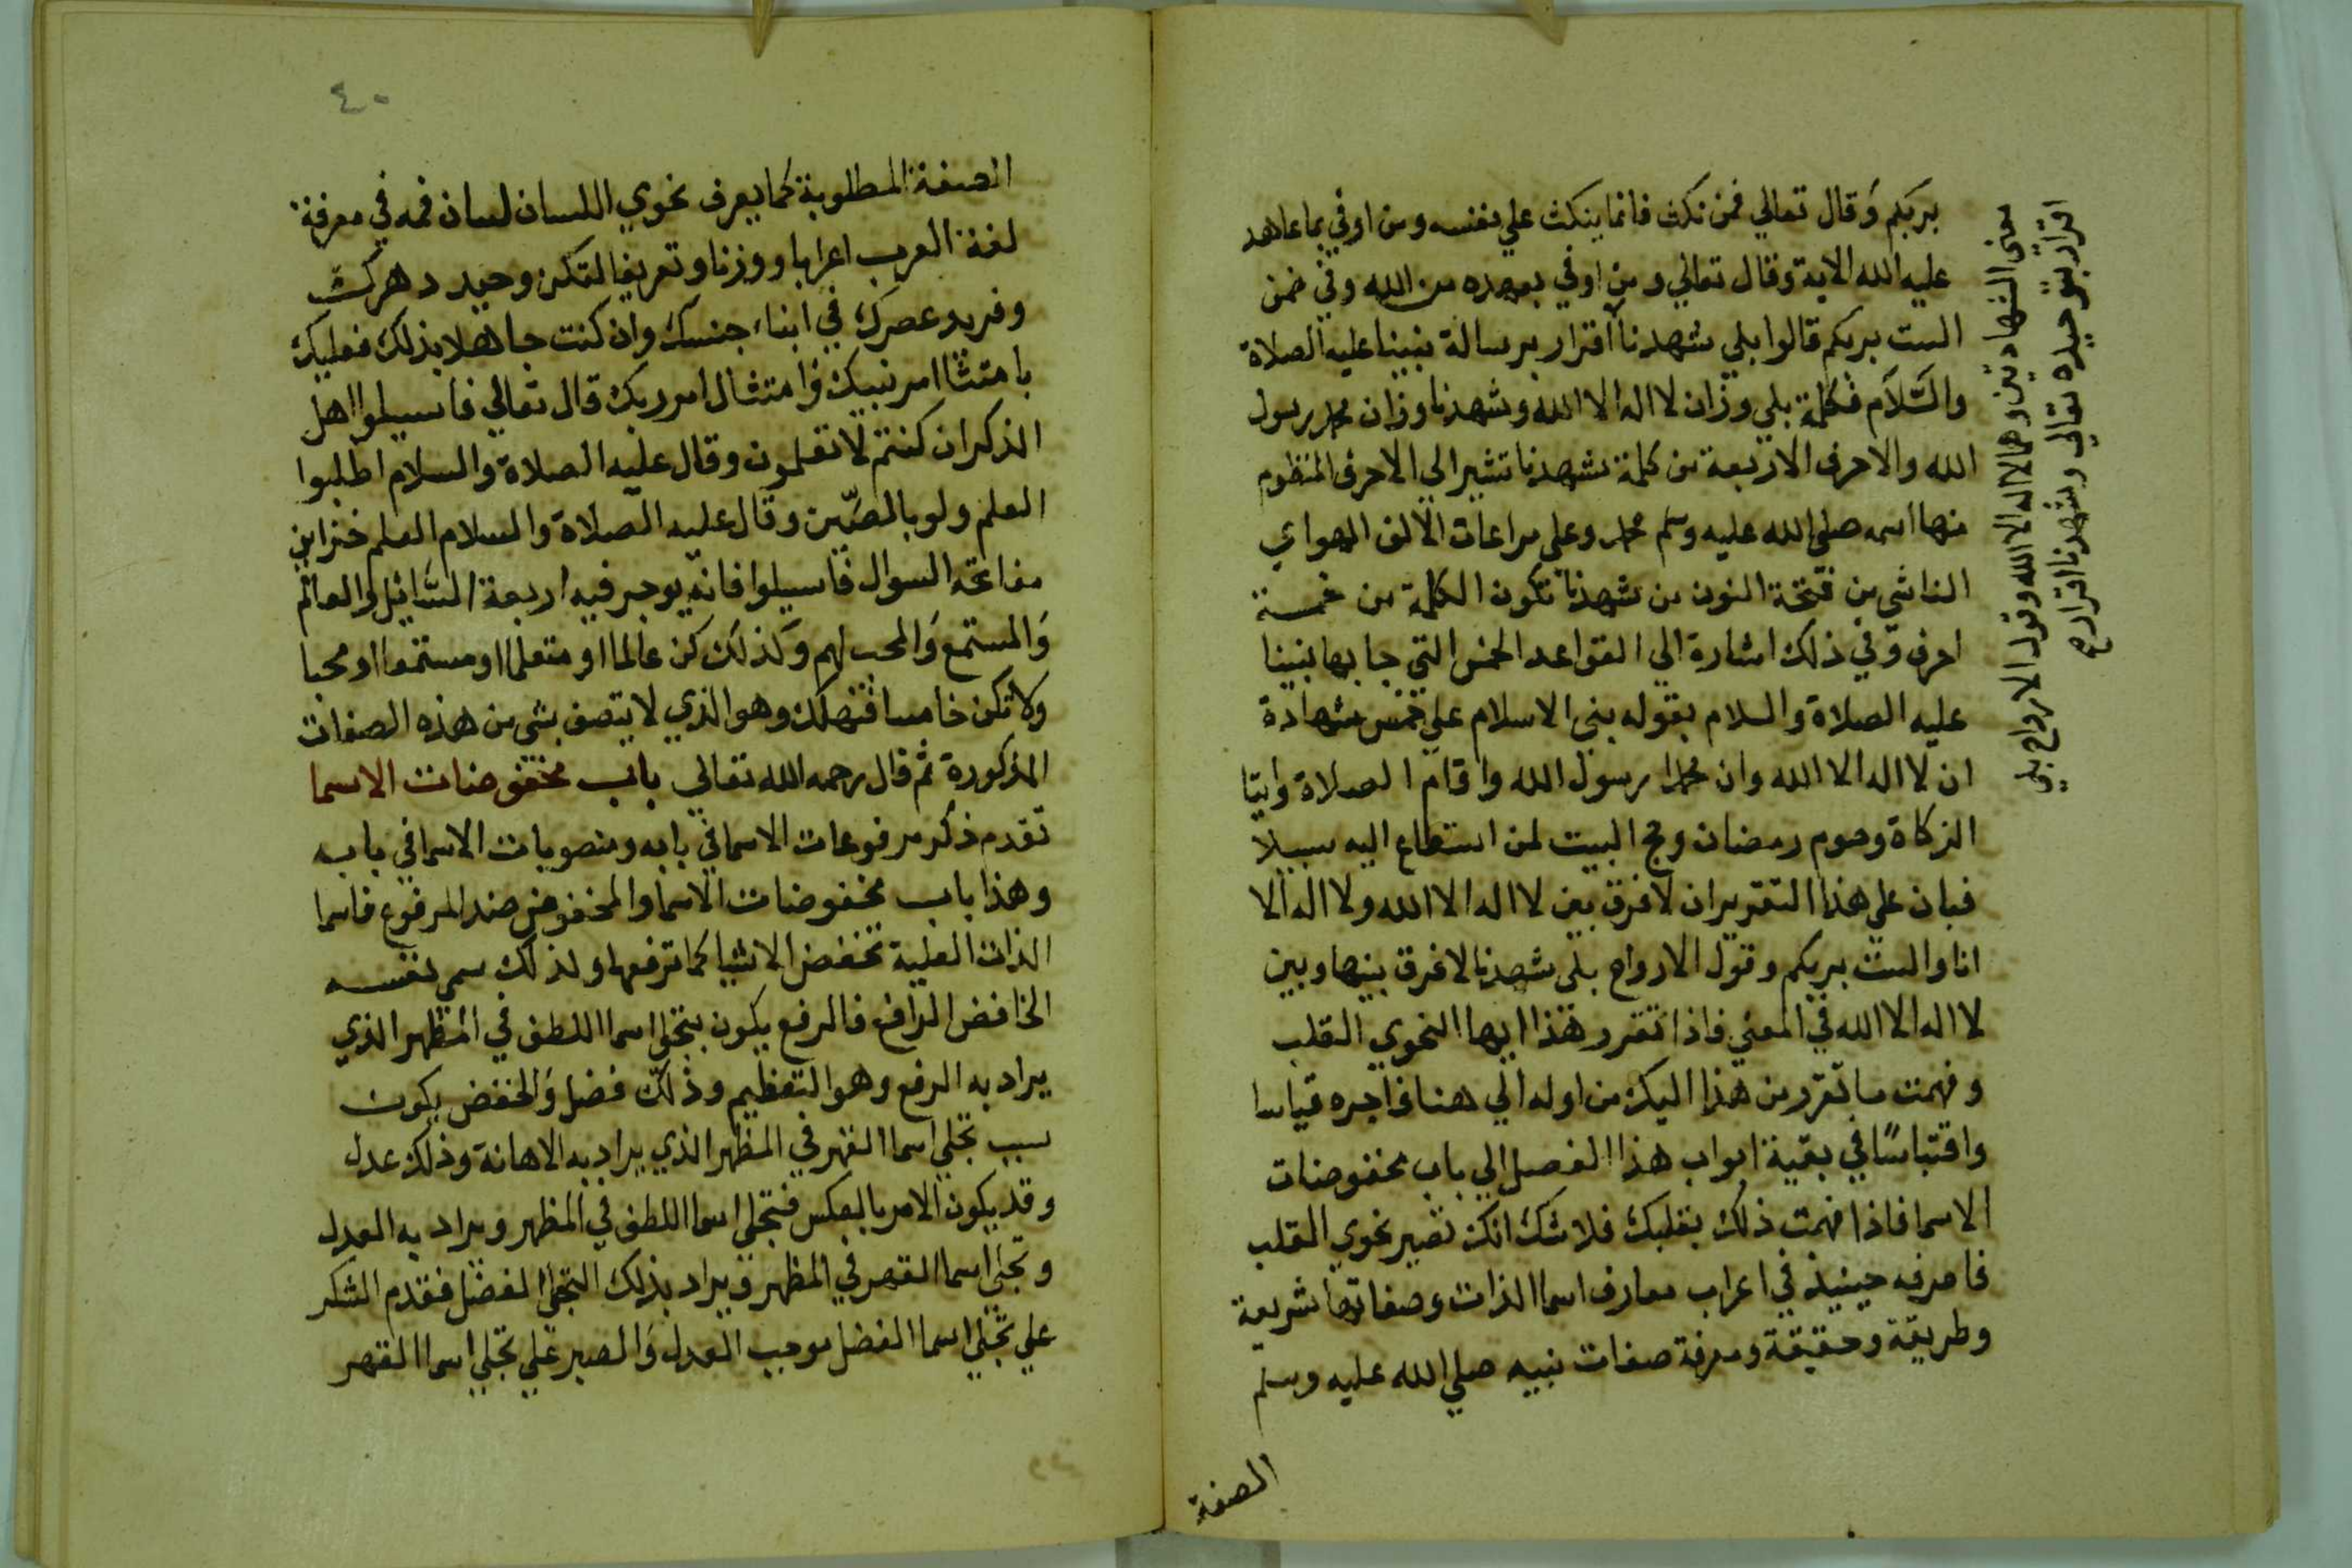 بربكم وقال تعالي فمن نكث فانما ينكث علي نفسه ومن اوفي بما عاهد
عليه الله الاية وقال تعالي ومن اوفي بعهده من الله وفي ضمن
الست بربكم قالوا بلي شهدنا اقرار برسالة نبينا عليه الصلاة
والسَّلاَم فكلمة بلي وزان لا اله الا الله وشهدنا وزان محمد رسول
الله والاحرف الاربعة من كلمة شهدنا تشير الي الاحرف المنظوم
منها اسمه صلي الله عليه وسلم محمد وعلي مراعات الالف الهواي
الناشي من فتحة النون من شهدنا تكون الكلمة من خمسة
احرف وفي ذلك اشارة الي القواعد الخمس التي جا بها نبينا
عليه الصلاة والسلام بقوله بني الاسلام علي خمس شهادة
ان لا اله الا الله وان محمدا رسول الله واقام الصلاة وايتا
الزكاة وصوم رمضان وحج البيت لمن استطاع اليه سبيلا
فبان علي هذا التقرير ان لا فرق بين لا اله الا الله ولا اله الا
انا والست بربكم وقول الارواح بلي شهدنا لا فرق بينها وبين
لا اله الا الله في المعني فاذا تقرر هذا ايها النحوي القلب
وفهمت ما تقرر من هذا اليك من اوله الي هنا فاجره قياسا
واقتباسًا في بقية ابواب هذا الفصل الي باب مخفوضات
الاسما فاذا فهمت ذلك بقلبك فلا شك انك تصير نحوي القلب
فاصرفه حينيذ في اعراب معارف اسما الذات وصفاتها شريعة
وطريقة وحقيقة ومعرفة صفات نبيه صلي الله عليه وسلم
الصفة
معني الشهادتين وهما لا اله الا الله وقول الارواح بلي
اقرار بتوحيده تعالي وشهدنا اقرار ح
٤٠
الصفة المطلوبة كما يعرف نحوي اللسان لسان فمه في معرفة
لغة العرب اعرابا ووزنا وتعريفا لتكن وحيد دهرك
وفريد عصرك في ابناء جنسك وان كنت جاهلا بذلك فعليك
بامتثا امر نبيك وامتثال امر ربك قال تعالي فاسيلوا اهل
الذكر ان كنتم لا تعلمون وقال عليه الصلاة والسلام اطلبوا
العلم ولو بالصّين وقال عليه الصلاة والسلام العلم خزاين
مفاتحه السوال فاسيلوا فانه يوجر فيه اربعة السَّائل والعالم
وَالمستمع وَالمحب لهم وكذلك كن عالما او متعلما او مستمعا او محبا
ولا تكن خامسا فتهلك وهو الذي لا يتصف بشي من هذه الصفات
المذكورة ثم قال رحمه الله تعالي باب مخفوضات الاسما
تقدم ذكر مرفوعات الاسما في بابه ومنصوبات الاسما في بابه
وهذا باب مخفوضات الاسما والمخفوض ضد المرفوع فاسما
الذات العلية تخفض الاشيا كما ترفعها ولذلك سمي نفسه
الخافض الرافع فالرفع يكون بتجلي اسما اللطف في المظهر الذي
يراد به الرفع وهو التعظيم وذلك فضل وَالخفض يكون
بسبب تجلي اسما القهر في المظهر الذي يراد به الاهانة وذلك عدل
وقد يكون الامر بالعكس فتجلي اسما اللطف في المظهر ويراد به العدل
وتجلي اسما القهر في المظهر ويراد بذلك التجلي الفضل فقدم الشكر
علي تجلي اسما الفضل موجب العدل وَالصبر علي تجلي اسما القهر